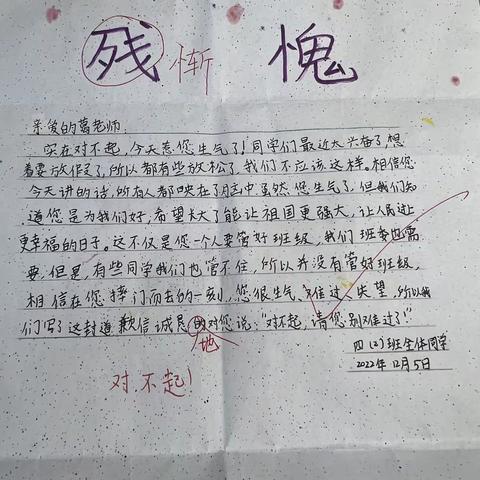 残惭愧
亲爱的葛老师:
实在对不起,今天惹您生气了!同学们最近太兴奋了,想
着要放假了,所以都有些放松了,我们不应该这样。相信您
今天讲的话,所有人都映在了脑中虽然您生气了,但我们知
道您是为我们好,希望长大了能让祖国更强大,让人民过上
更幸福的日子。这不仅是您一个人要管好班级,我们班委也需
要,但是,有些同学我们也管不住,所以并没有管好班级,
相信在您摔门而去的一刻,您很生气、难过、失望,所以我
们写了这封道歉信诚恳的对您说:“对不起,请您别难过了!”
地
四(2)班全体同学
2022年12月5日
对不起!